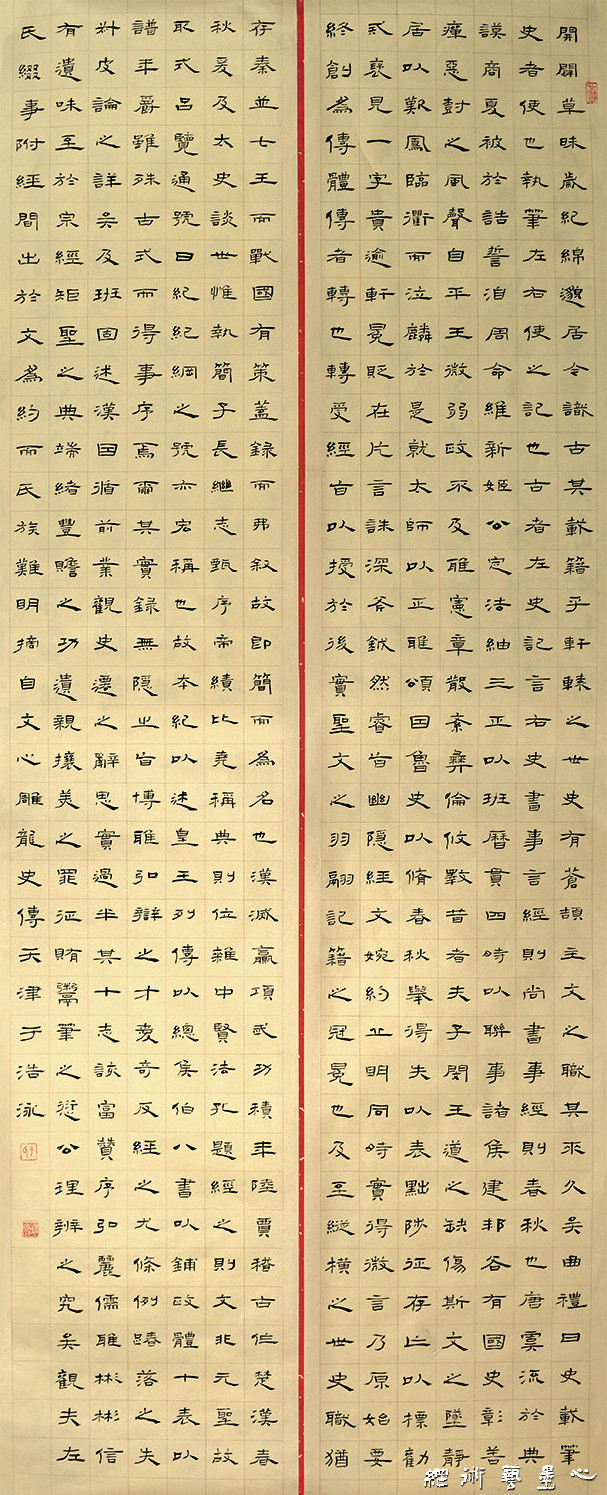 開闢草昧歲紀綿邈居今識古其載籍乎軒轅之世史有蒼頡主文之職其來久矣曲禮曰史載筆
史者使也執筆左右使之記也古者左史記言右史書事言經則尚書事經則春秋也唐虞流於典
謨商夏被於誥誓洎周命維新姬公定法紬三正以班曆貫四時以聯事諸侯建邦各有國史彰善
癉惡樹之風聲自平王微弱政不及雅憲章散紊彝倫攸斁昔者夫子閔王道之缺傷斯文之墜靜
居以歎鳳臨衢而泣麟於是就太師以正雅頌因魯史以脩春秋舉得失以表黜陟征存亡以標勸
戒褒見一字貴逾軒冕貶在片言誅深斧鉞然睿旨幽隱經文婉約丘明同時實得微言乃原始要
終創為傳體傳者轉也轉受經旨以授於後實聖文之羽翮記籍之冠冕也及至縱橫之世史職猶
存秦並七王而戰國有策蓋錄而弗敘故即簡而為名也漢滅嬴項武功積年陸賈稽古作楚漢春
秋爰及太史談世惟執簡子長繼志甄序帝績比堯稱典則位雜中賢法孔題經之則文非元聖故
取式呂覽通號曰紀紀綱之號亦宏稱也故本紀以述皇王列傳以總侯伯八書以鋪政體十表以
譜年爵雖殊古式而得事序焉爾其實錄無隱之旨博雅弘辯之才愛奇反經之尤條例踳落之失
叔皮論之詳矣及班固述漢因循前業觀史遷之辭思實過半其十志該富贊序弘麗儒雅彬彬信
有遺味至於宗經矩聖之典端緒豐贍之功遺親攘美之罪征賄鬻筆之愆公理辨之究矣觀夫左
氏綴事附經間出於文為約而氏族難明摘自文心雕龍史傳天津于浩泳
心墨藝術